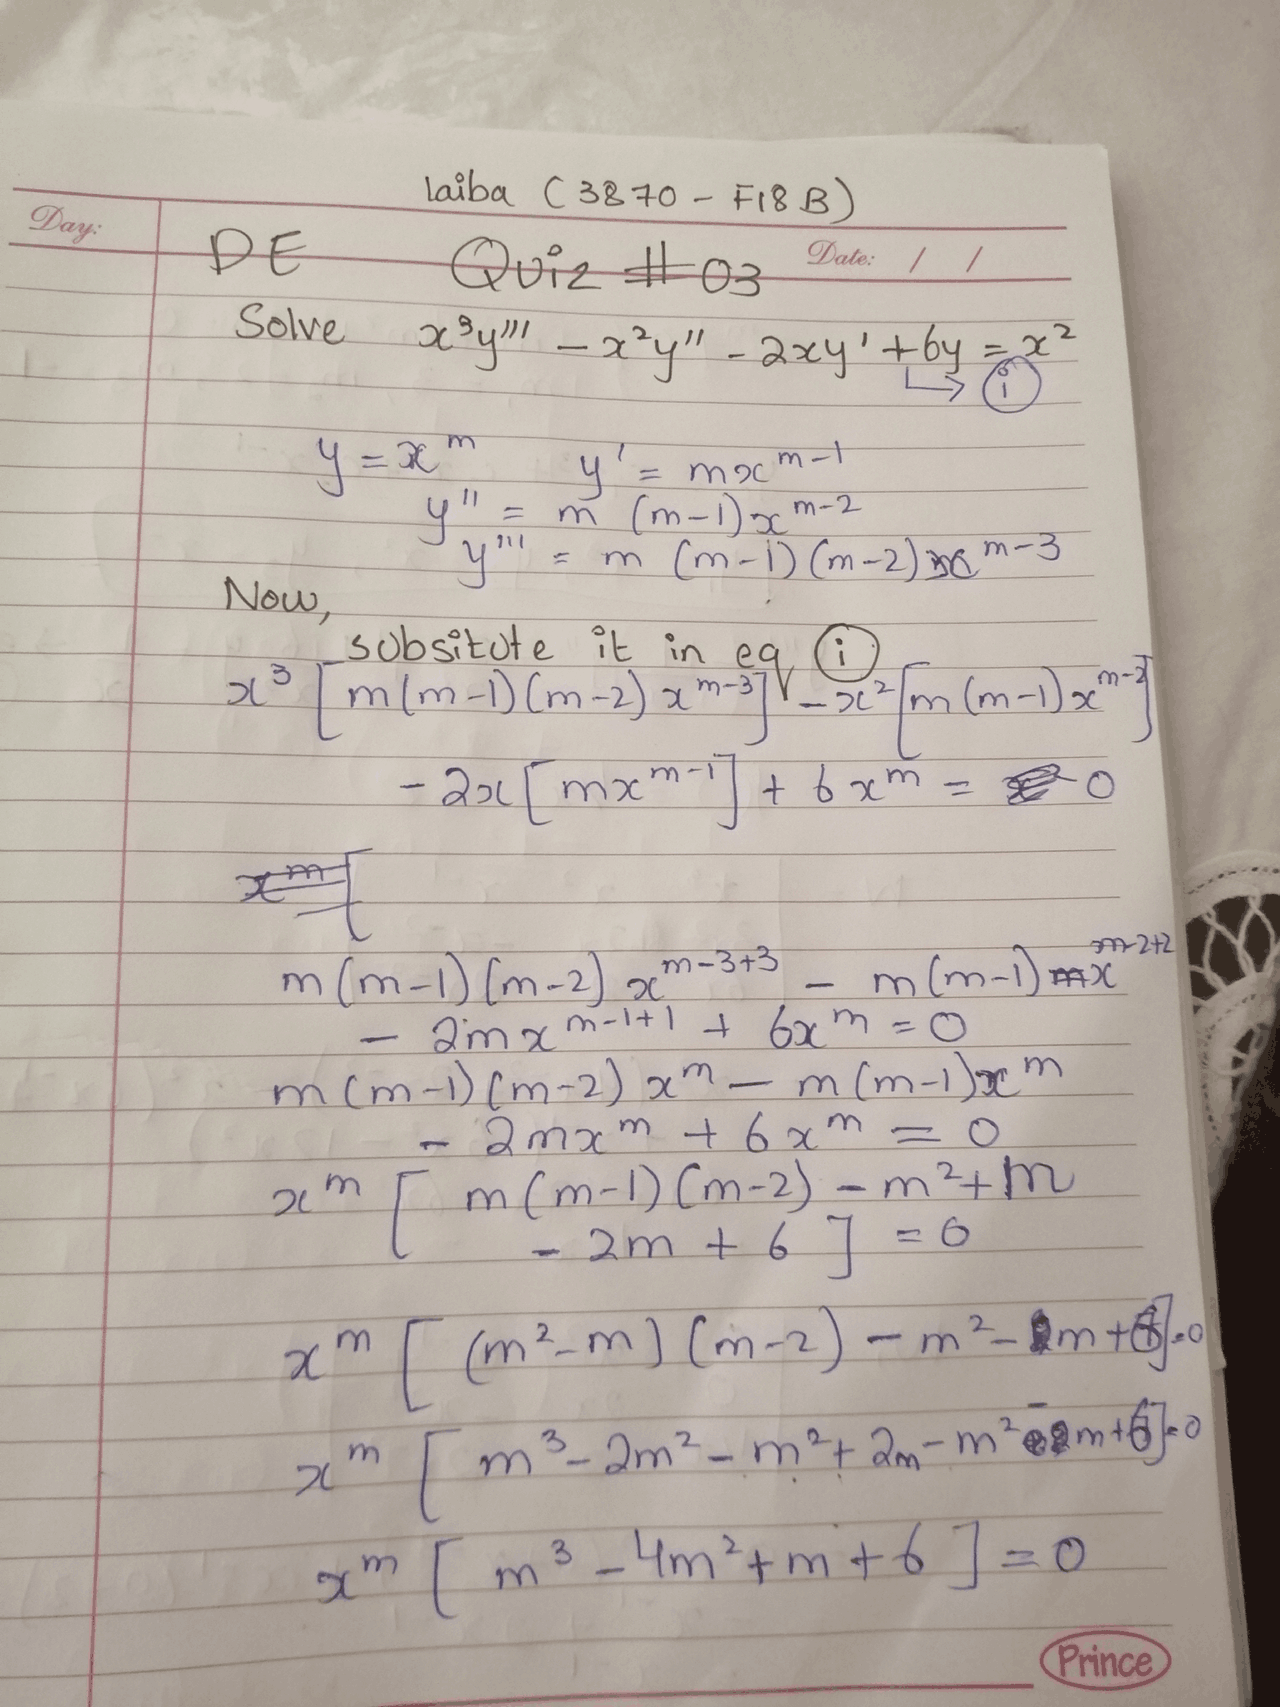 laiba (3870 - F18 B)
Day:
DE Quiz # 03 Date: / /
Solve x³y''' - x²y'' - 2xy' + 6y = x²
↳ (i)
y = x^m y' = mx^{m-1}
y'' = m (m-1) x^{m-2}
y''' = m (m-1) (m-2) x^{m-3}
Now,
subsitute it in eq (i)
x³ [m(m-1)(m-2) x^{m-3}] - x² [m(m-1) x^{m-2}]
- 2x [mx^{m-1}] + 6x^m = 0
x^m [
m(m-1)(m-2) x^{m-3+3} - m(m-1) x^{m-2+2}
- 2mx^{m-1+1} + 6x^m = 0
m(m-1)(m-2) x^m - m(m-1) x^m
- 2mx^m + 6x^m = 0
x^m [ m(m-1)(m-2) - m² + m
- 2m + 6 ] = 0
x^m [ (m²-m)(m-2) - m² - m + 6] = 0
x^m [ m³ - 2m² - m² + 2m - m² - m + 6] = 0
x^m [ m³ - 4m² + m + 6 ] = 0
Prince